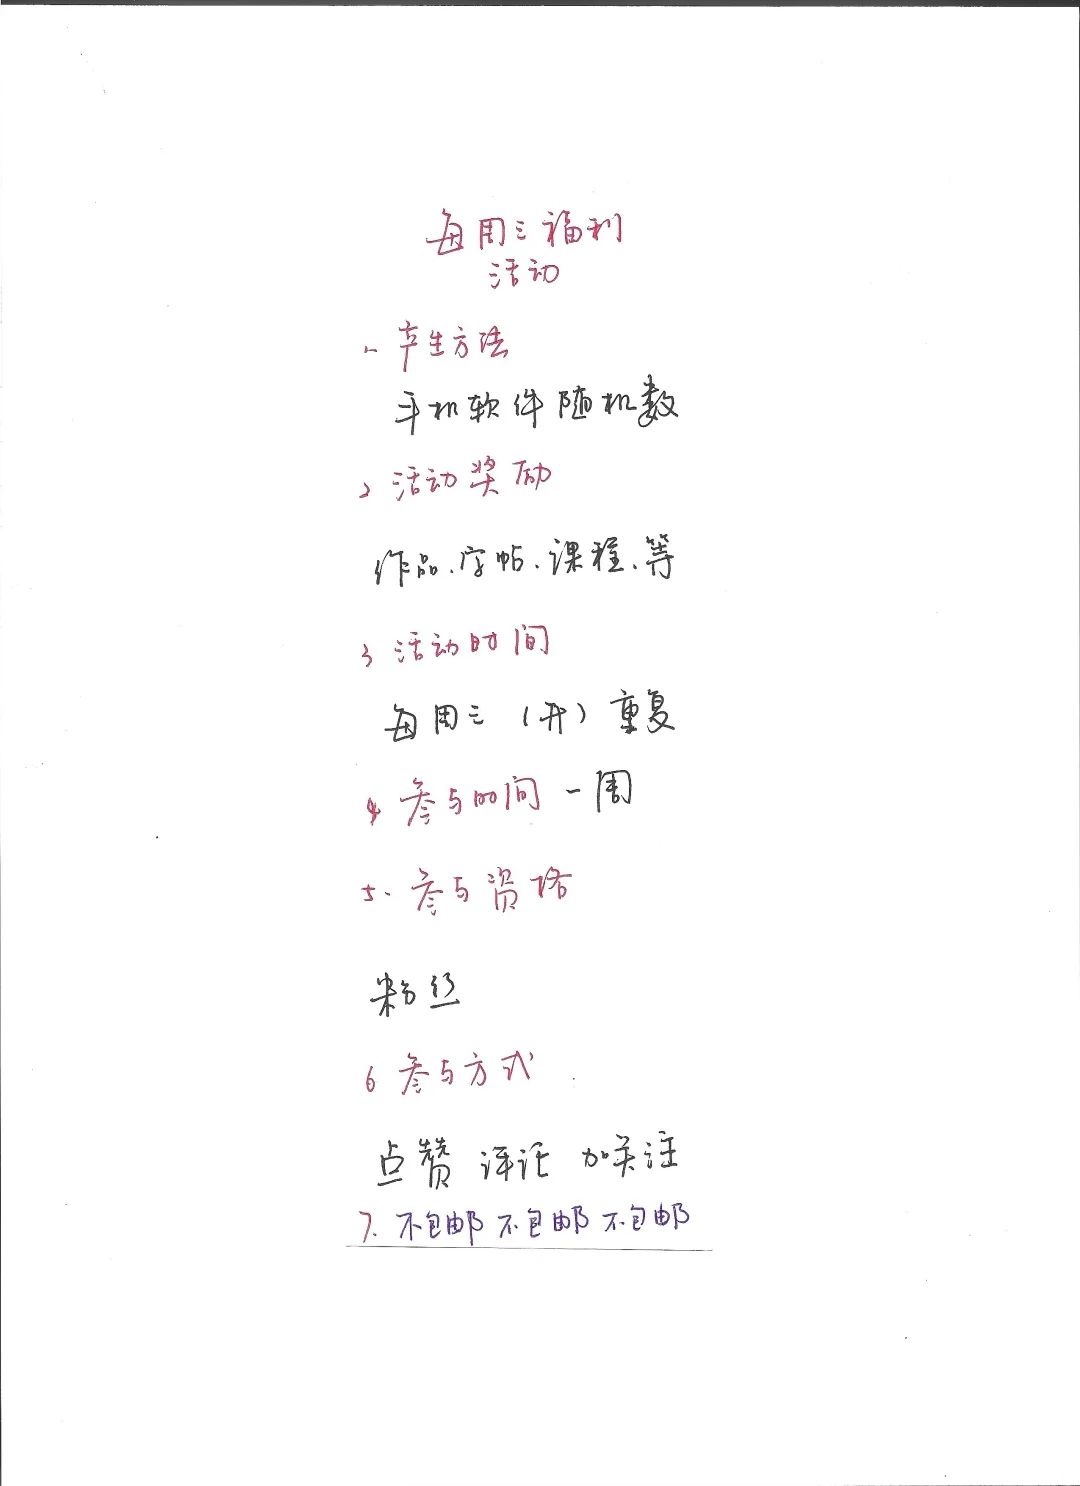 每周三福利
活动
1、产生方法
手机软件随机数
2、活动奖励
作品、字帖、课程、等
3 活动时间
每周三（开）重复
4 参与时间 一周
5、参与资格
粉丝
6 参与方式
点赞 评论 加关注
7. 不包邮 不包邮 不包邮